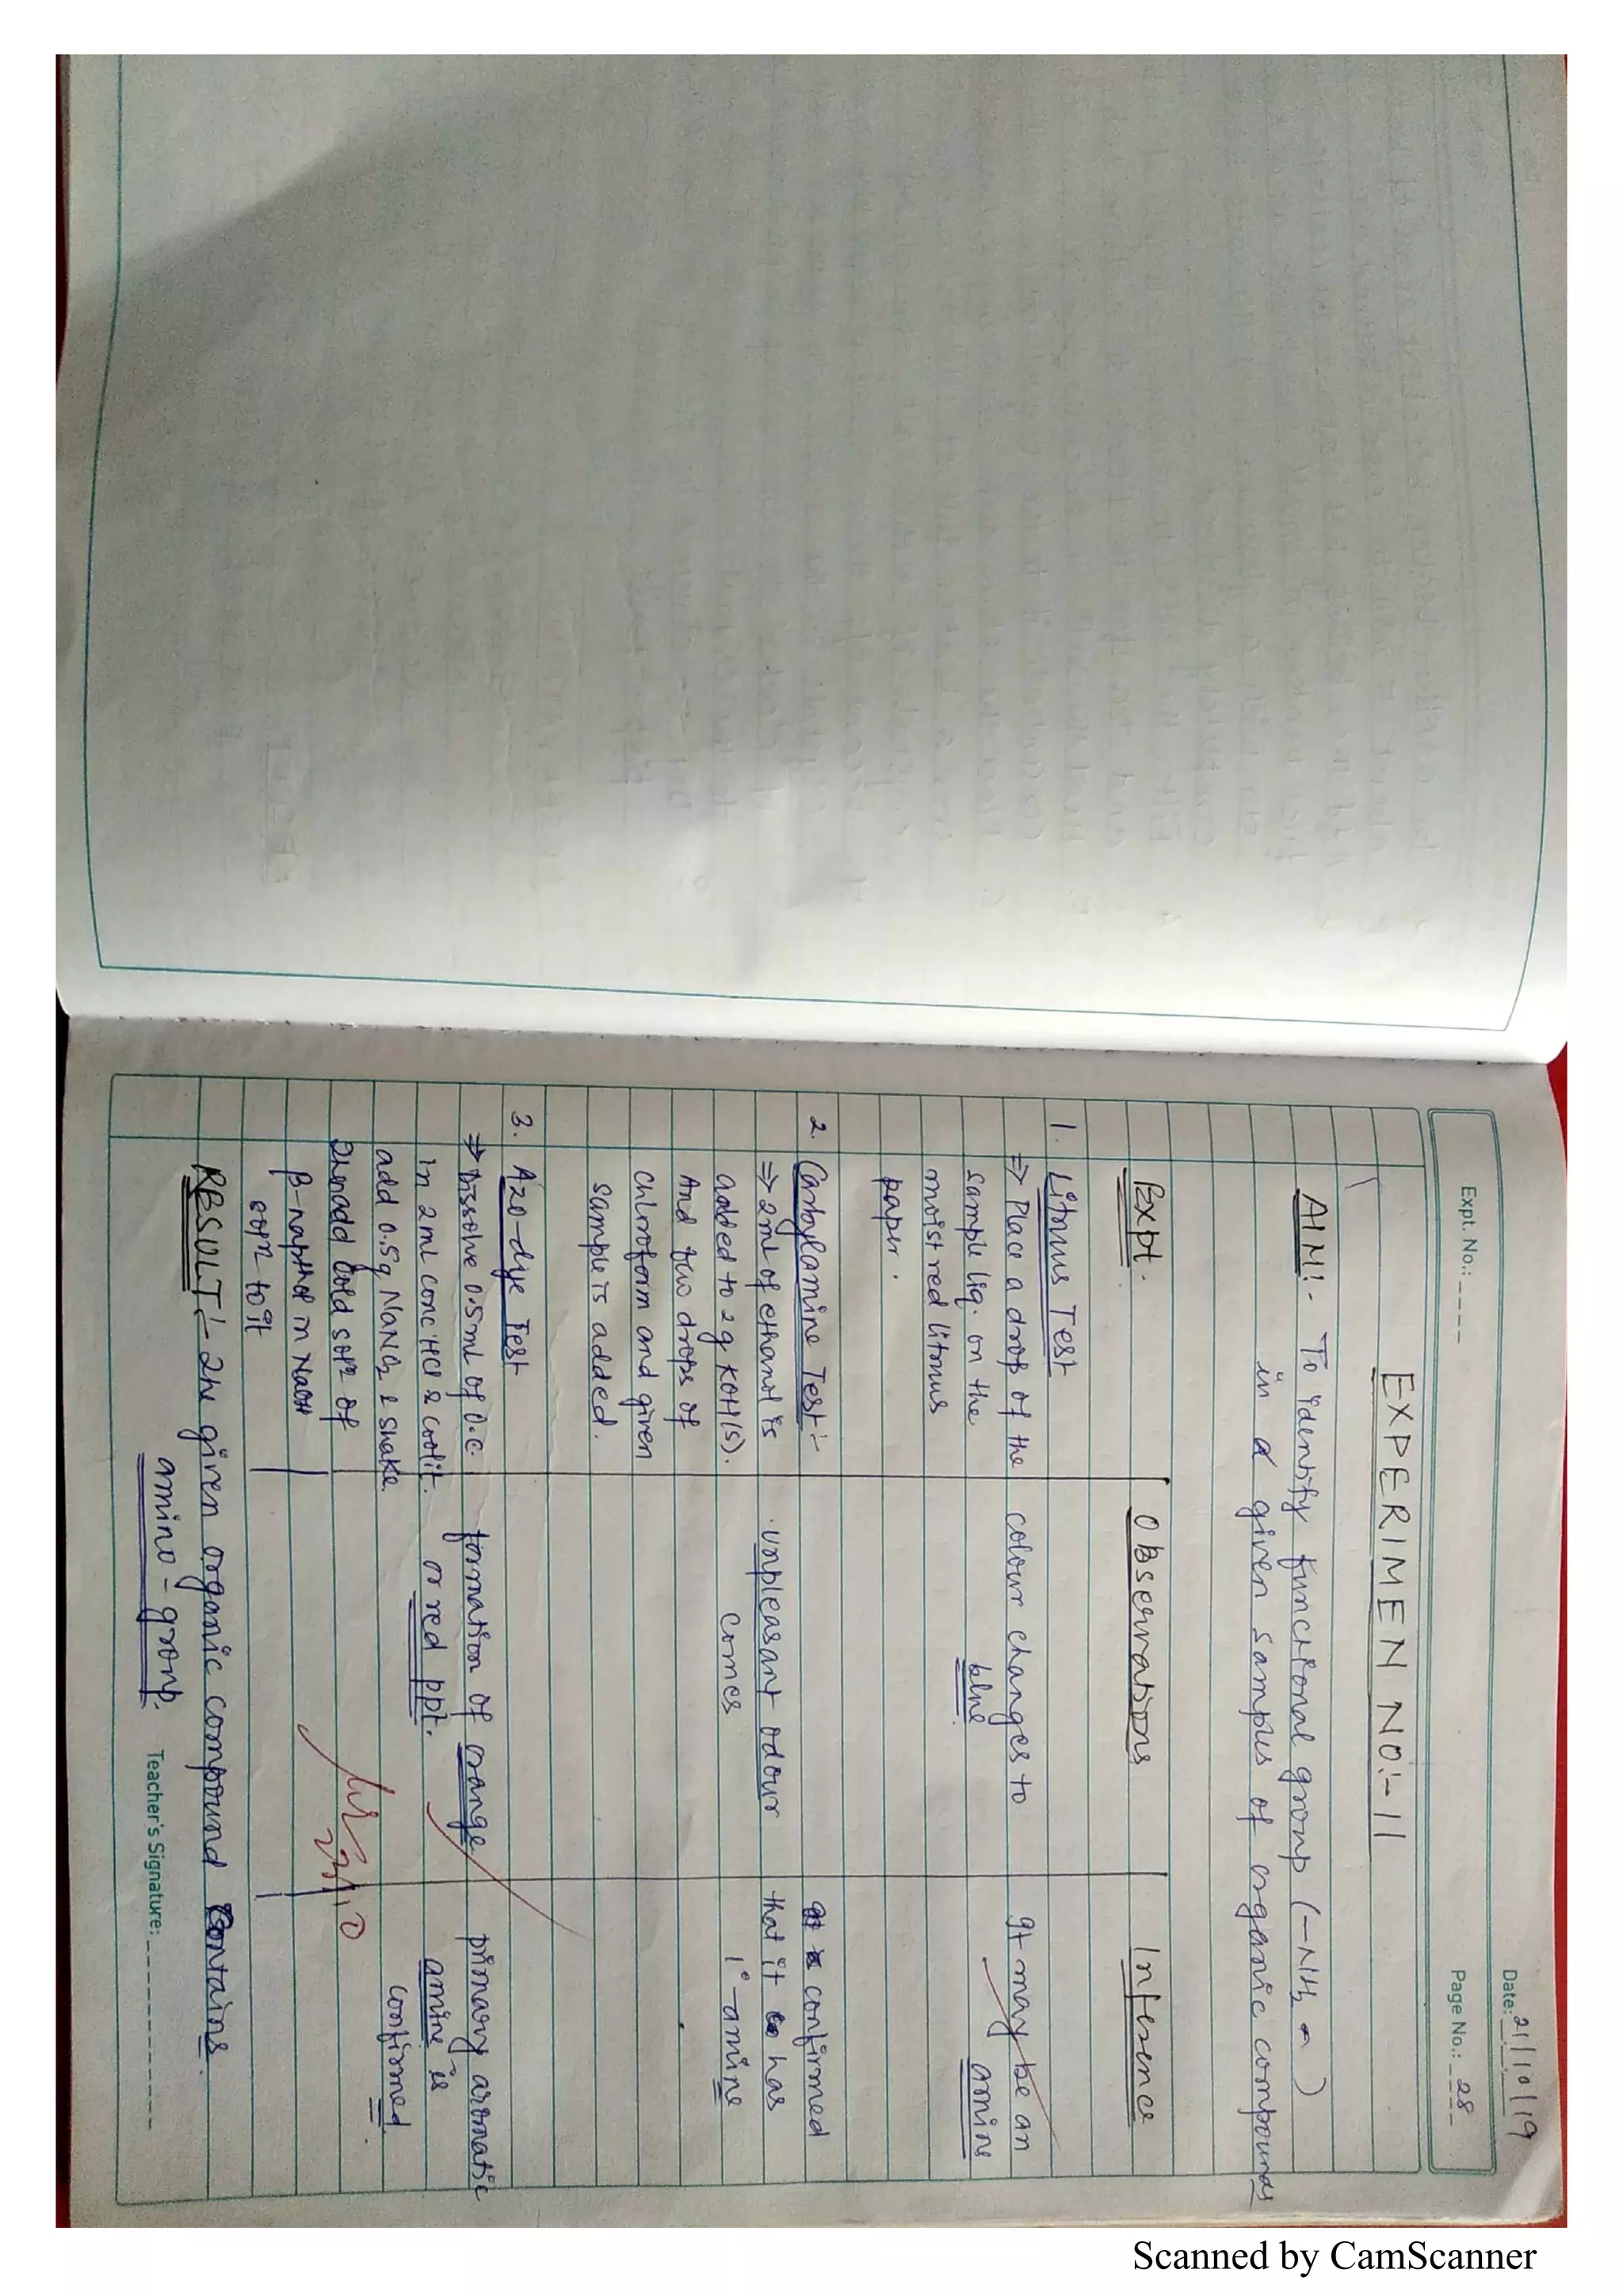 Date: 21/10/19
Expt. No.:
Page No.: 28
EXPERIMEN NO:- 11
AIM:- To identify functional group (-NH2 )
in a given sampus of organic compounds
Expt. Observations Inference
1. Litmus Test
=> Place a drop of the colour changes to It may be an
sample liq. on the blue. amine
moist red litmus
paper.
2. Carbylamine Test:- confirmed
=> 2ml of ethanol is unpleasant odour that it has
added to 2g KOH(s). comes 1°-amine
And two drops of
chloroform and given
sample is added.
3. Azo-dye Test
=> Dissolve 0.5ml of O.C. formation of orange primary aromatic
in 2ml conc HCl & cool it. or red ppt. amine is
add 0.5g NaNO2 & shake. confirmed.
Then add cold solⁿ of
β-napthol in NaOH
solⁿ to it
RESULT:- The given organic compound contains
amino-group.
Teacher's Signature:
Scanned by CamScanner